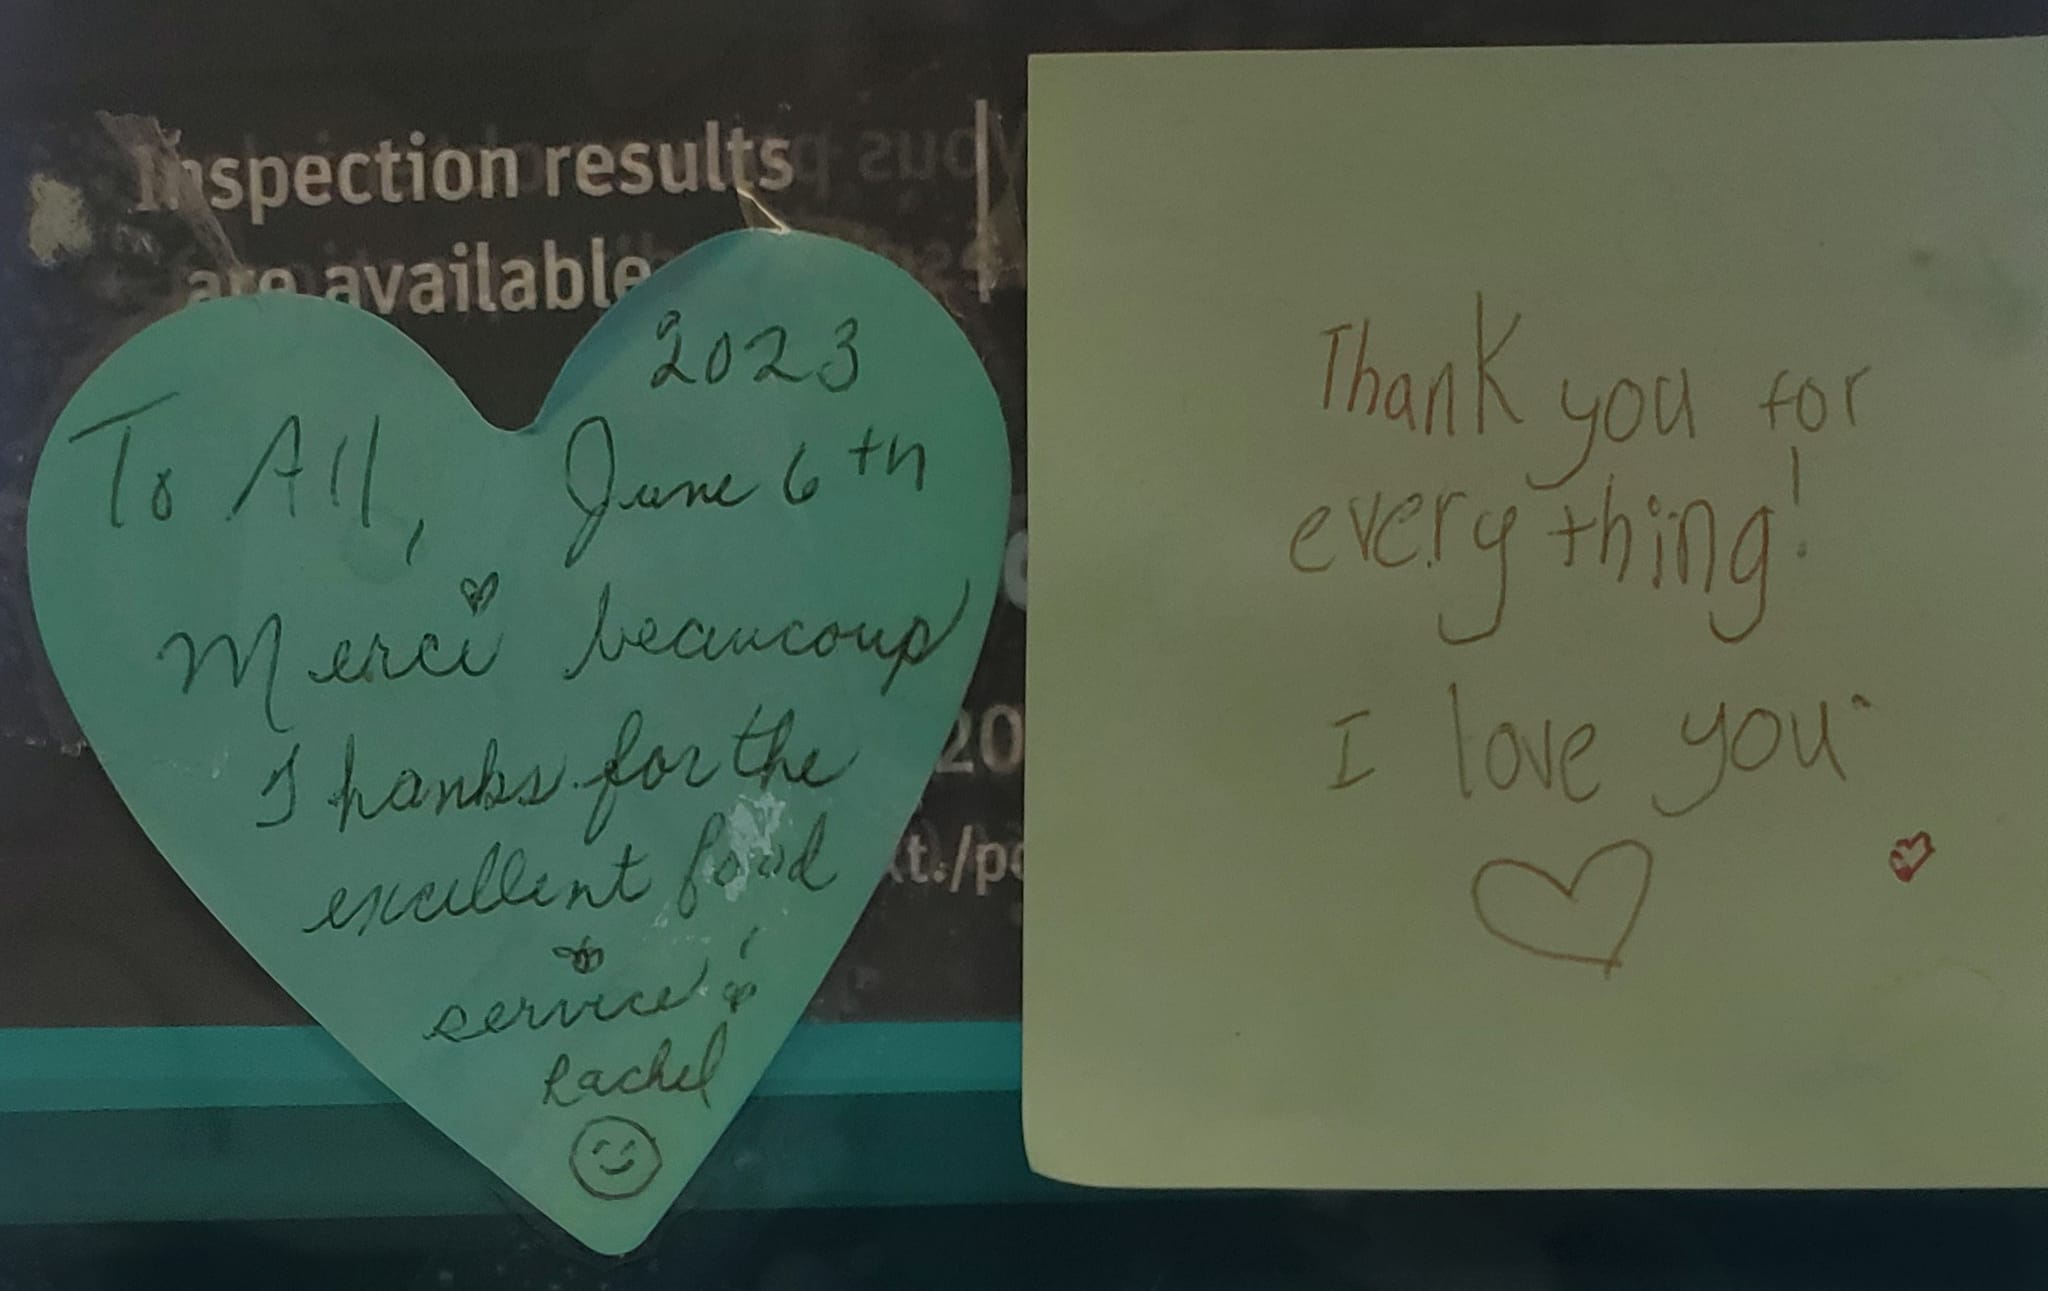 Inspection results
are available
2023
To All, June 6th
Merci beaucoup
Thanks for the
excellent food
service!
Rachel
Thank you for
everything!
I love you
20
t./po